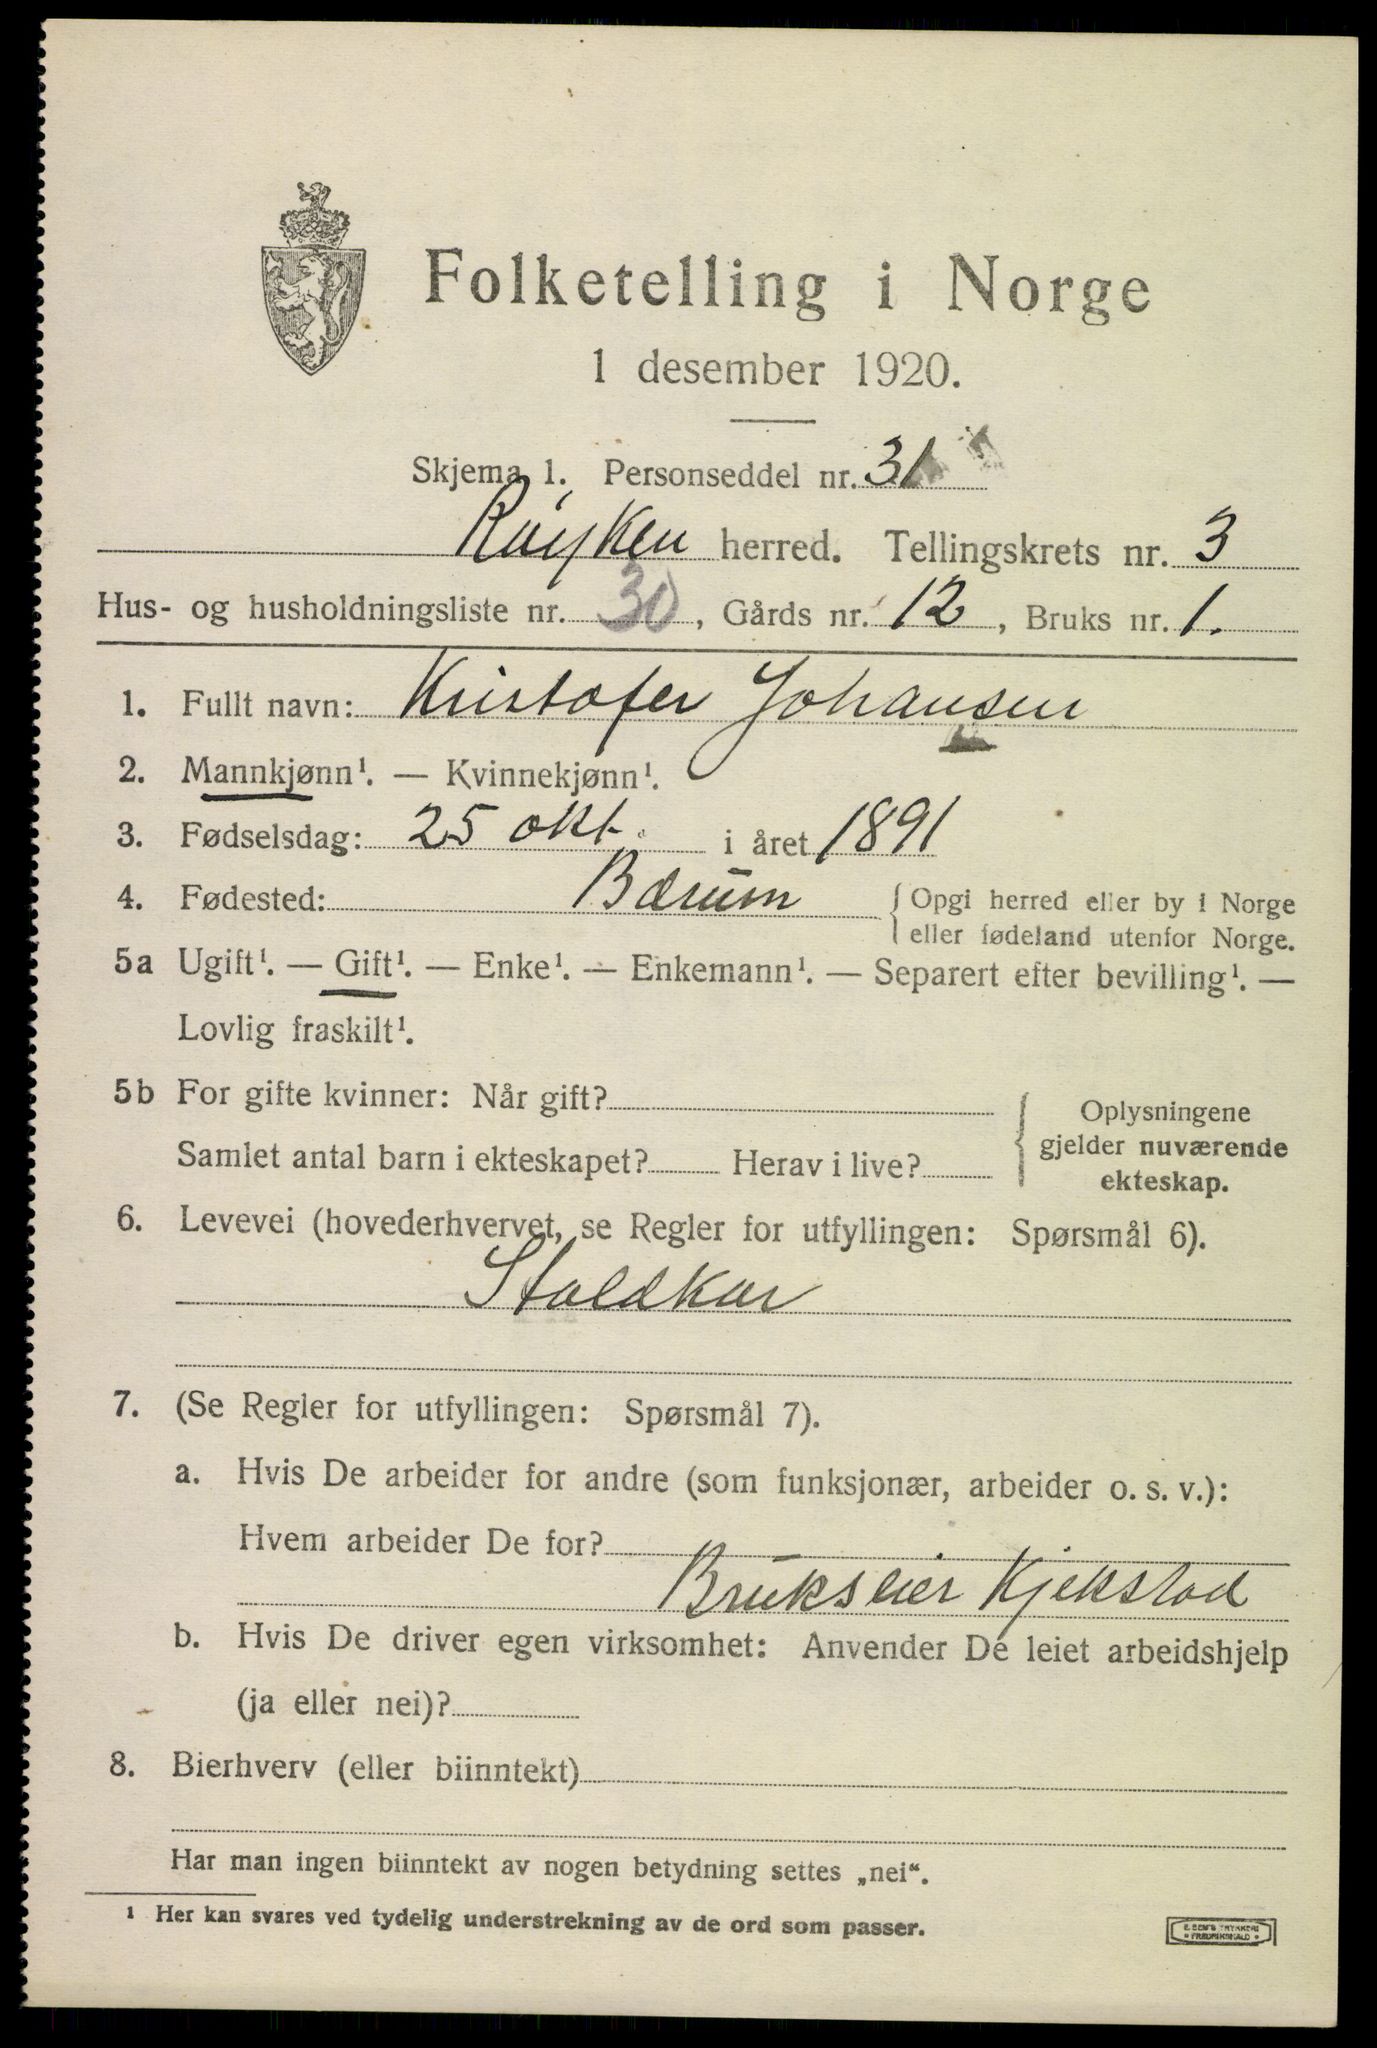 Folketelling i Norge
1 desember 1920.
Skjema 1. Personseddel nr. 31
Røyken herred. Tellingskrets nr. 3
Hus- og husholdningsliste nr. 30, Gårds nr. 12, Bruks nr. 1.
1. Fullt navn: Kristofer Johansen
2. Mannkjønn¹. — Kvinnekjønn¹.
3. Fødselsdag: 25 okt. i året 1891
4. Fødested: Bærum { Opgi herred eller by i Norge
eller fødeland utenfor Norge.
5a Ugift¹. — Gift¹. — Enke¹. — Enkemann¹. — Separert efter bevilling¹. —
Lovlig fraskilt¹.
5b For gifte kvinner: Når gift?
Samlet antal barn i ekteskapet? Herav i live?
{ Oplysningene
gjelder nuværende
ekteskap.
6. Levevei (hovederhvervet, se Regler for utfyllingen: Spørsmål 6).
Staldkar
7. (Se Regler for utfyllingen: Spørsmål 7).
a. Hvis De arbeider for andre (som funksjonær, arbeider o. s. v.):
Hvem arbeider De for?
Brukseier Kjekstad
b. Hvis De driver egen virksomhet: Anvender De leiet arbeidshjelp
(ja eller nei)?
8. Bierhverv (eller biinntekt)
Har man ingen biinntekt av nogen betydning settes „nei“.
¹ Her kan svares ved tydelig understrekning av de ord som passer.
E. SEM'S TRYKKERI
FREDRIKSHALD